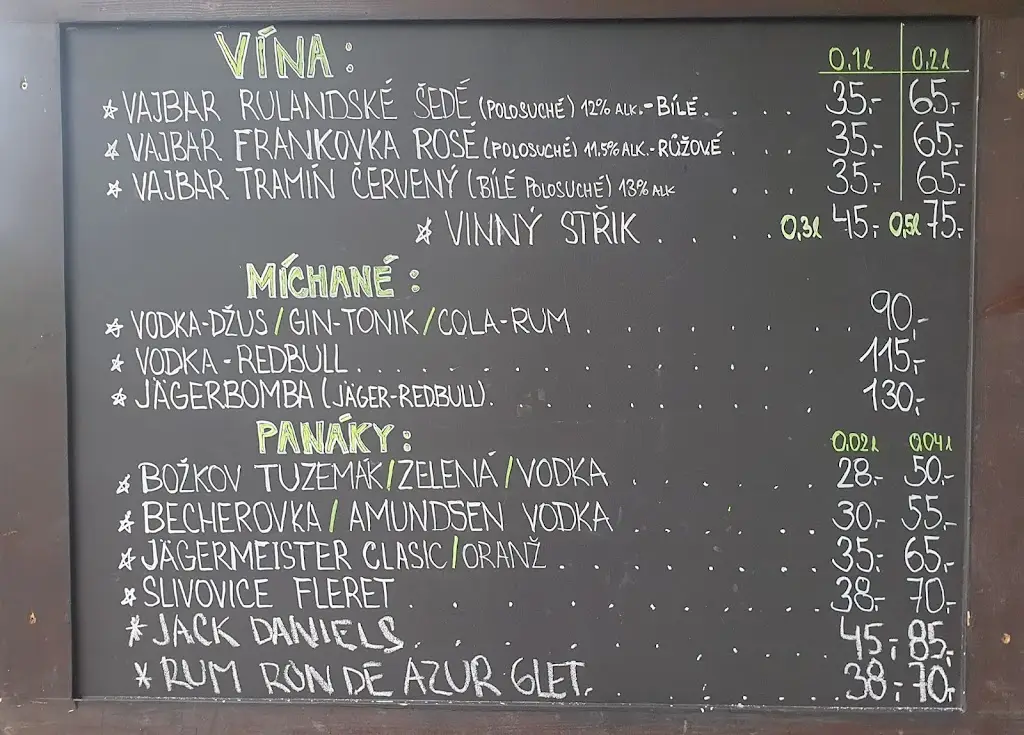 VÍNA: 0,1l 0,2l
VAJBAR RULANDSKÉ ŠEDÉ (POLOSUCHÉ) 12% ALK.-BÍLÉ. . . . 35,- 65,-
VAJBAR FRANKOVKA ROSÉ (POLOSUCHÉ) 11.5% ALK.-RŮŽOVÉ . . . 35,- 65,-
VAJBAR TRAMÍN ČERVENÝ (BÍLÉ POLOSUCHÉ) 13% ALK . . . 35,- 65,-
VINNÝ STŘIK . . . . . 0,3l 45,- 0,5l 75,-
MÍCHANÉ:
VODKA-DŽUS/GIN-TONIK/COLA-RUM . . . . . . . . 90,-
VODKA-REDBULL . . . . . . . . . . . . 115,-
JÄGERBOMBA (JÄGER-REDBULL). . . . . . . . . 130,-
PANÁKY: 0.02l 0,04l
BOŽKOV TUZEMÁK/ZELENÁ/VODKA . . . . . . 28,- 50,-
BECHEROVKA/AMUNDSEN VODKA . . . . . . 30,- 55,-
JÄGERMEISTER CLASIC/ORANŽ . . . . . . . . 35,- 65,-
SLIVOVICE FLERET . . . . . . . . . . . 38,- 70,-
JACK DANIELS . . . . . . . . . . . 45,- 85,-
RUM RON DE AZUR GLET. . . . . . . . 38,- 70,-